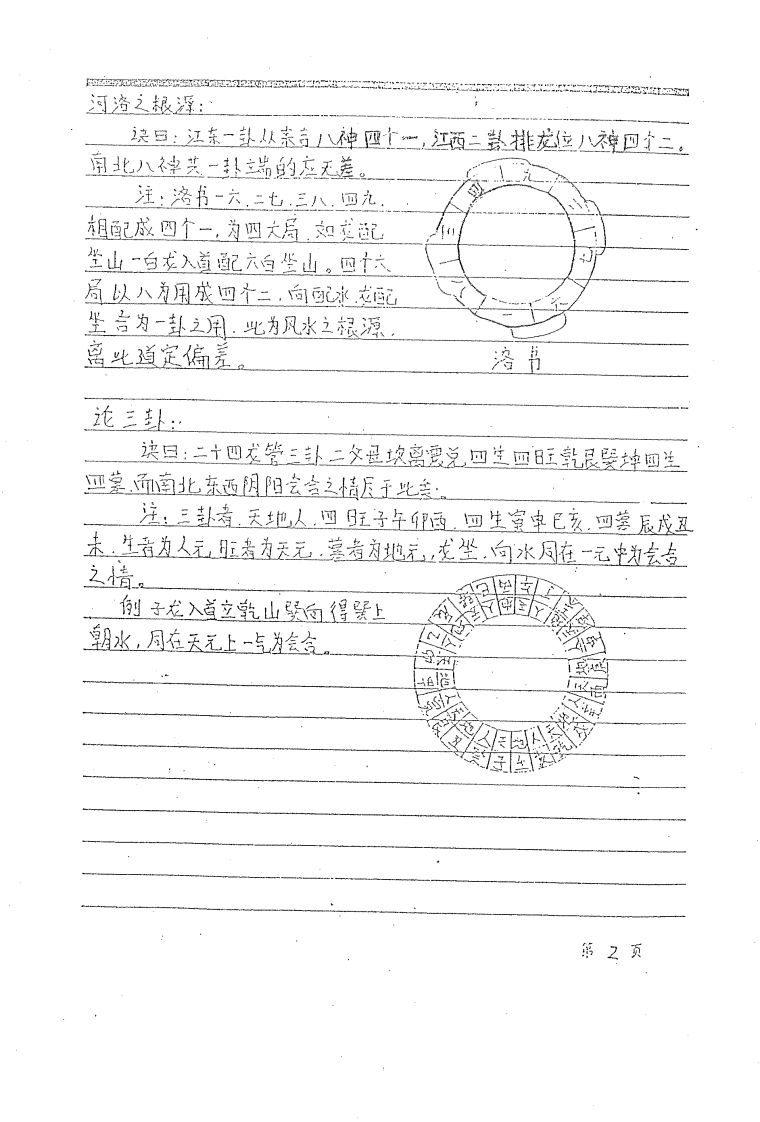 河洛之根源:
诀曰:江东一卦从来吉八神四个一,江西二卦排龙位八神四个二。
南北八神共一卦端的应无差。
注:洛书一六.二七.三八.四九.
相配成四个一,为四大局.如龙配
坐山一白龙入首配六白坐山。四个六
局以八为用成四个二,向配水龙配
坐合为一卦之用.此为风水之根源.
离此道定偏差。
洛书
论三卦:
诀曰:二十四龙管三卦二父母坎离震兑四生四旺乾艮巽坤四生
四墓.而南北东西阴阳会合之情尽于此矣.
注:三卦者.天地人.四旺子午卯酉.四生寅申巳亥.四墓辰戌丑
未.生者为人元,旺者为天元.墓者为地元,龙坐.向水同在一元中为会合
之情。
例子龙入首立乾山巽向得巽上
朝水,同在天元上一气为会合。
第2页